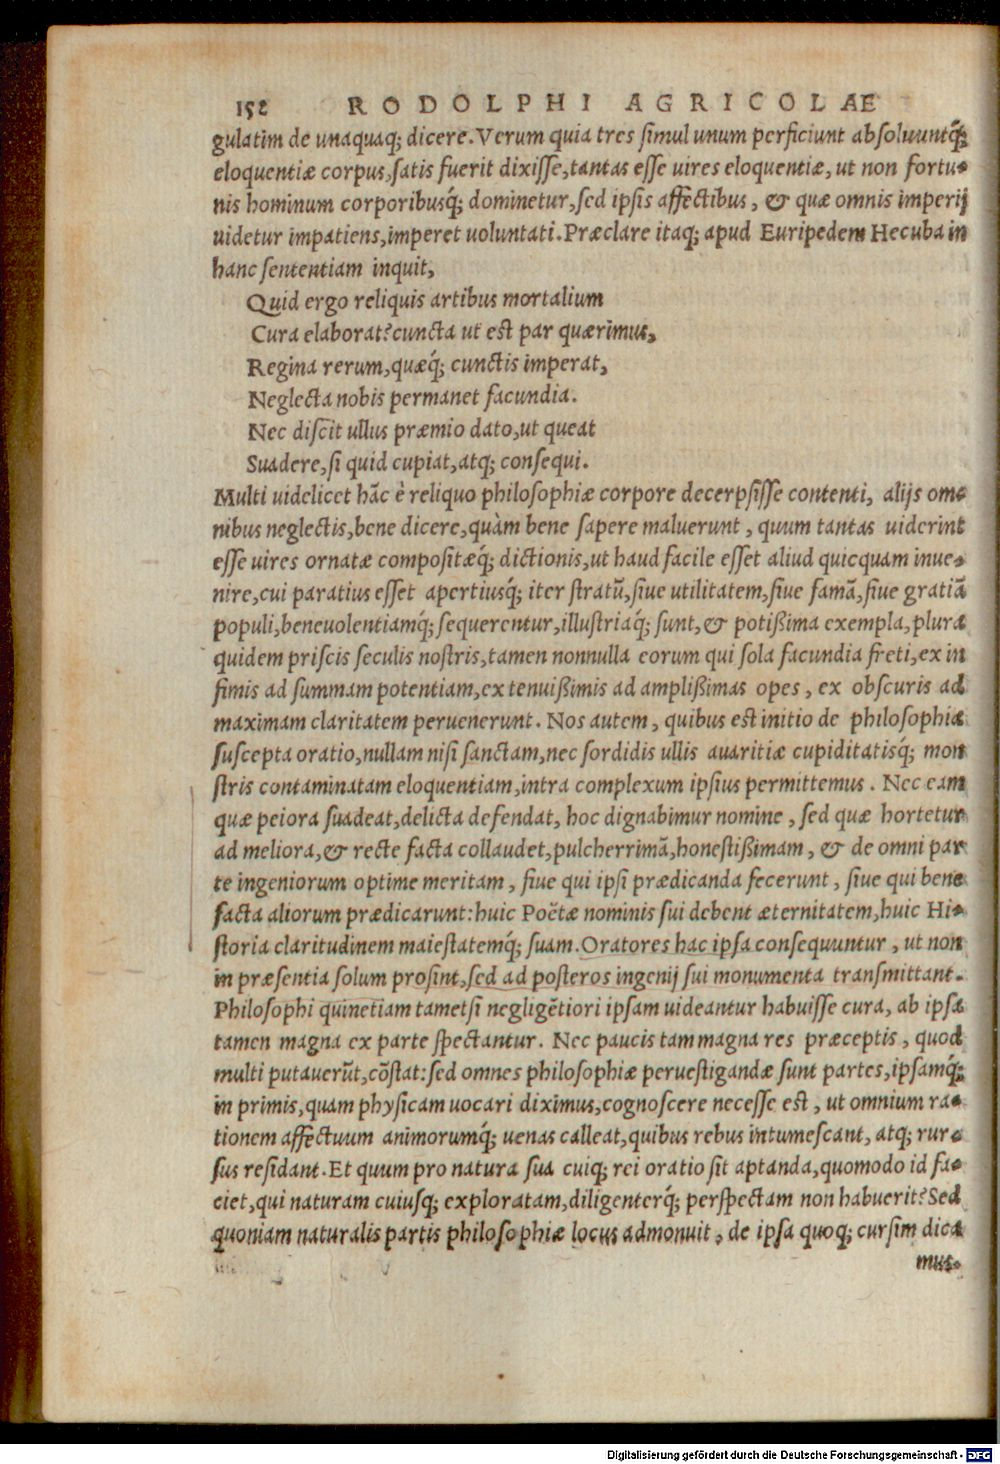 152 RODOLPHI AGRICOLAE
gulatim de unaquaq; dicere. Verum quia tres simul unum perficiunt absoluuntq́;
eloquentiæ corpus, satis fuerit dixisse, tantas esse uires eloquentiæ, ut non fortu-
nis hominum corporibusq́; dominetur, sed ipsis affectibus, & quæ omnis imperij
uidetur impatiens, imperet uoluntati. Præclare itaq; apud Euripedem Hecuba in
hanc sententiam inquit,
Quid ergo reliquis artibus mortalium
Cura elaborat? cuncta ut est par quærimus,
Regina rerum, quæq́; cunctis imperat,
Neglecta nobis permanet facundia.
Nec discit ullus præmio dato, ut queat
Suadere, si quid cupiat, atq; consequi.
Multi uidelicet hãc è reliquo philosophiæ corpore decerpsisse contenti, alijs om-
nibus neglectis, bene dicere, quàm bene sapere maluerunt, quum tantas uiderint
esse uires ornatæ compositæq́; dictionis, ut haud facile esset aliud quicquam inue-
nire, cui paratius esset apertiusq́; iter stratũ, siue utilitatem, siue famã, siue gratiã
populi, beneuolentiamq́; sequerentur, illustriaq́; sunt, & potißima exempla, plura
quidem priscis seculis nostris, tamen nonnulla eorum qui sola facundia freti, ex in
fimis ad summam potentiam, ex tenuißimis ad amplißimas opes, ex obscuris ad
maximam claritatem peruenerunt. Nos autem, quibus est initio de philosophia
suscepta oratio, nullam nisi sanctam, nec sordidis ullis auaritiæ cupiditatisq́; mon
stris contaminatam eloquentiam, intra complexum ipsius permittemus. Nec eam
quæ peiora suadeat, delicta defendat, hoc dignabimur nomine, sed quæ hortetur
ad meliora, & recte facta collaudet, pulcherrimã, honestißimam, & de omni par
te ingeniorum optime meritam, siue qui ipsi prædicanda fecerunt, siue qui bene
facta aliorum prædicarunt: huic Poëtæ nominis sui debent æternitatem, huic Hi-
storia claritudinem maiestatemq́; suam. Oratores hac ipsa consequuntur, ut non
in præsentia solum prosint, sed ad posteros ingenij sui monumenta transmittant.
Philosophi quinetiam tametsi negligẽtiori ipsam uideantur habuisse cura, ab ipsa
tamen magna ex parte spectantur. Nec paucis tam magna res præceptis, quod
multi putauerũt, cõstat: sed omnes philosophiæ peruestigandæ sunt partes, ipsamq́;
in primis, quam physicam uocari diximus, cognoscere necesse est, ut omnium ra-
tionem affectuum animorumq́; uenas calleat, quibus rebus intumescant, atq; rur-
sus residant. Et quum pro natura sua cuiq; rei oratio sit aptanda, quomodo id fa-
ciet, qui naturam cuiusq; exploratam, diligenterq́; perspectam non habuerit? Sed
quoniam naturalis partis philosophiæ locus admonuit, de ipsa quoq; cursim dica
mus.
Digitalisierung gefördert durch die Deutsche Forschungsgemeinschaft - DFG